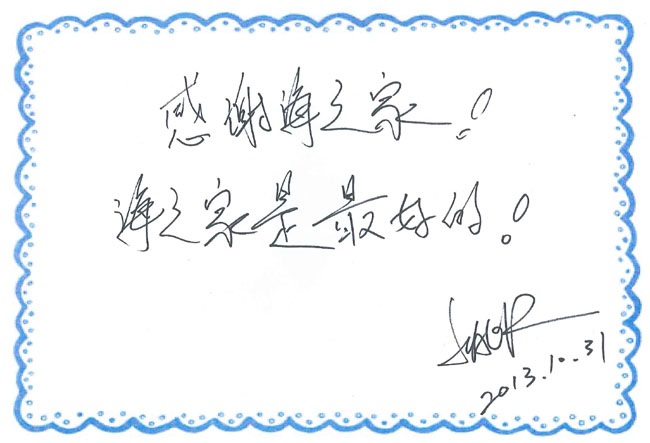 感谢译之家!
译之家是最好的!
2013.10.31